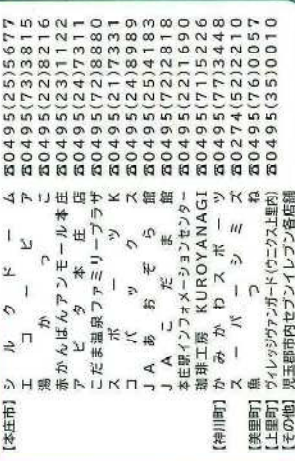 【本庄市】シルクドーム ☎0495(25)5677
エコーピア ☎0495(73)3815
湯かっこ ☎0495(22)8216
赤かんばんアンモール本庄 ☎0495(23)1122
アピタ本庄店 ☎0495(24)7311
こだま温泉ファミリープラザ ☎0495(72)8880
スポーツK ☎0495(21)7331
コパックス ☎0495(24)8989
JAあおぞら館 ☎0495(25)4183
JAこだま館 ☎0495(72)2818
本庄駅インフォメーションセンター ☎0495(22)1690
珈琲工房 KUROYANAGI ☎0495(71)5226
【神川町】かみかわスポーツ ☎0495(77)3448
スーパーシミズ ☎0274(52)2210
【美里町】魚つね ☎0495(76)0057
【上里町】ヴィレッジヴァンガード(ウニクス上里内) ☎0495(35)0010
【その他】児玉郡市内セブンイレブン各店舗